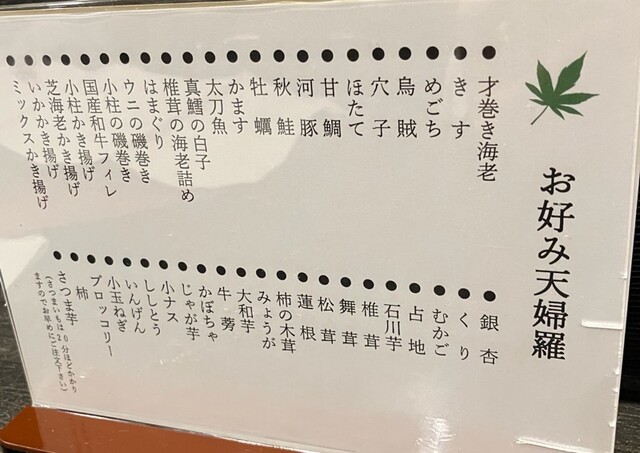 お好み天婦羅
才巻き海老
きす
めごち
烏賊
穴子
ほたて
甘鯛
河豚
秋鮭
牡蠣
かます
太刀魚
真鱈の白子
椎茸の海老詰め
はまぐり
ウニの磯巻き
小柱の磯巻き
国産和牛フィレ
小柱かき揚げ
芝海老かき揚げ
いかかき揚げ
ミックスかき揚げ
銀杏
くり
むかご
占地
石川芋
椎茸
舞茸
松茸
蓮根
柿の木茸
みょうが
大和芋
牛蒡
かぼちゃ
じゃが芋
小ナス
ししとう
いんげん
小玉ねぎ
ブロッコリー
柿
さつま芋
(さつまいもは20分ほどかかり
ますのでお早めにご注文下さい)